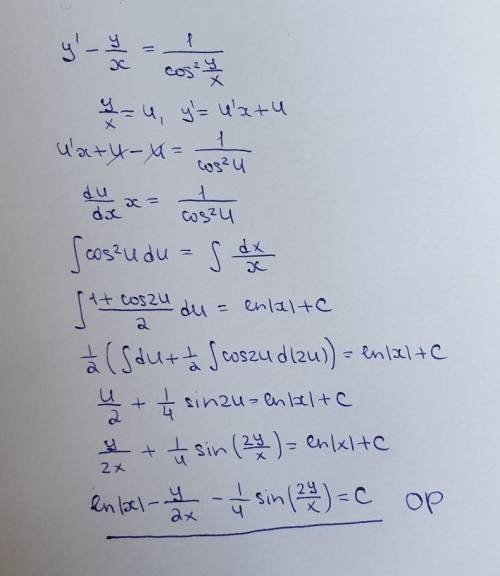 y' - y/x = 1/cos² y/x
y/x = u, y' = u'x + u
u'x + u - u = 1/cos²u
du/dx x = 1/cos²u
∫cos²u du = ∫ dx/x
∫ 1 + cos2u/2 du = ln|x| + C
1/2 (∫du + 1/2 ∫cos2u d(2u)) = ln|x| + C
u/2 + 1/4 sin2u = ln|x| + C
y/2x + 1/4 sin(2y/x) = ln|x| + C
ln|x| - y/2x - 1/4 sin(2y/x) = C OP